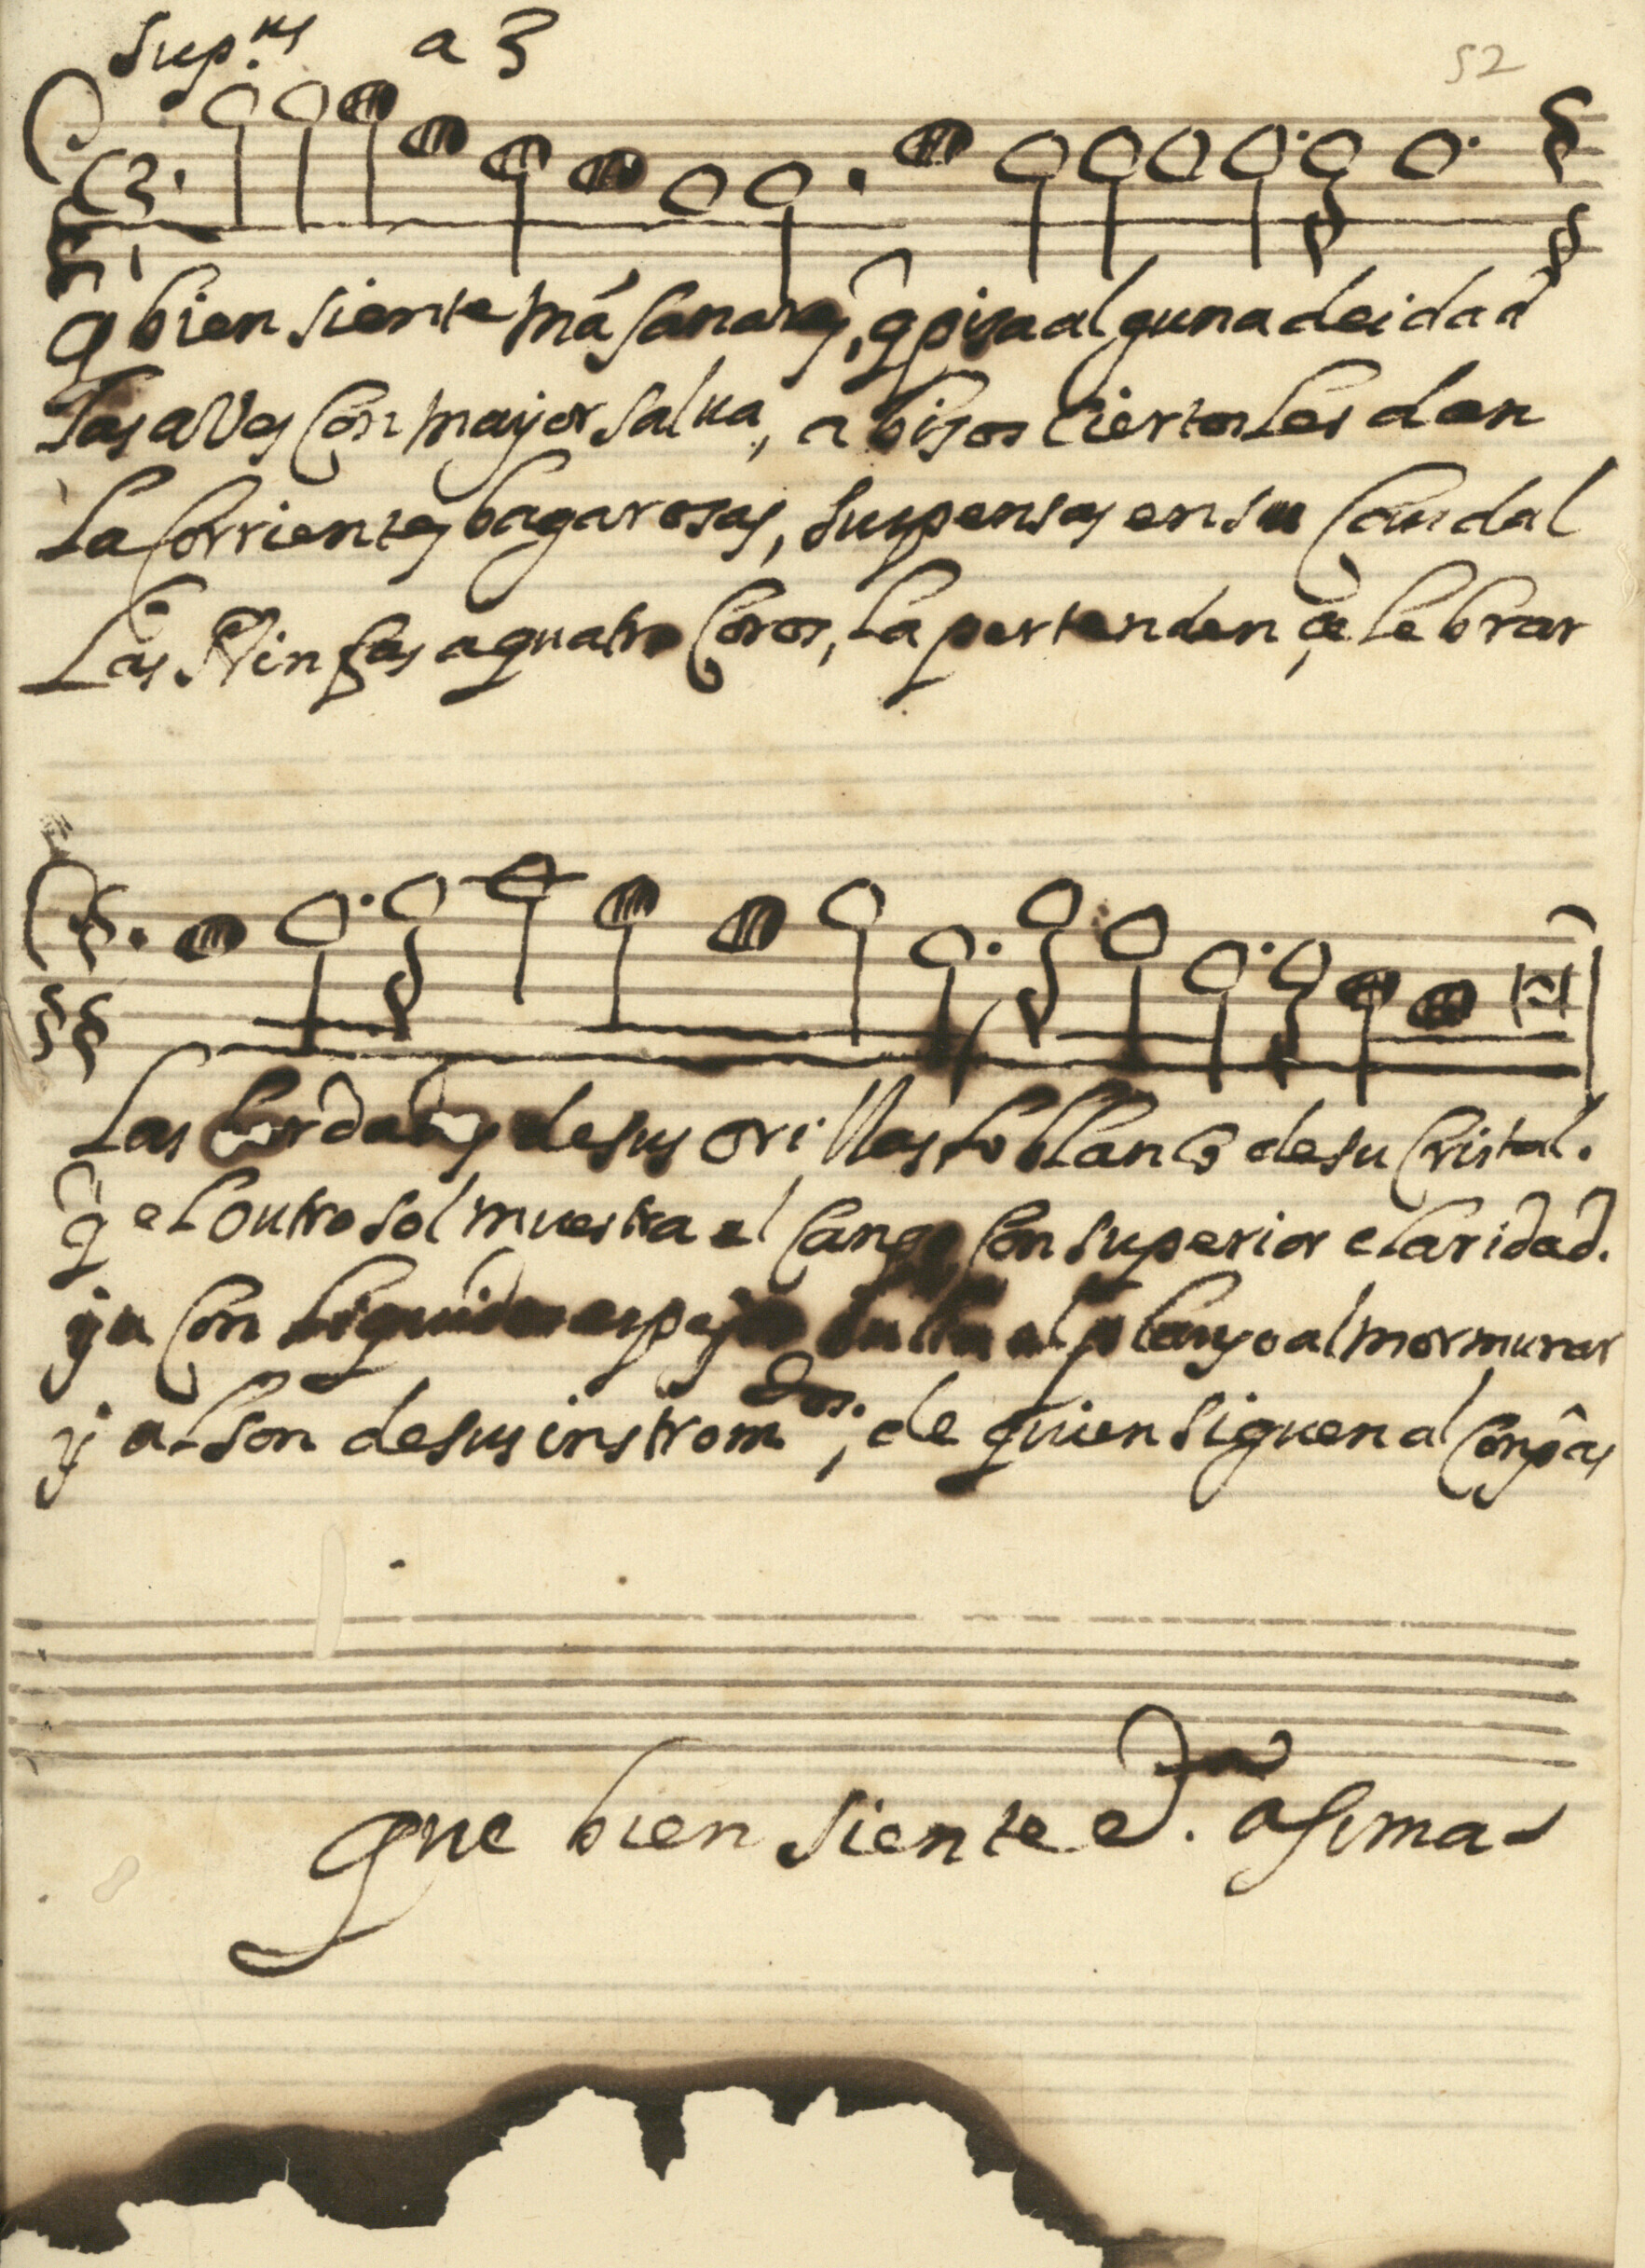 Sup.us a 3
52
q̃ bien siente mãsanares, q̃ pisa alguna deidad
las aves con mayor salua, abisos ciertos les dan
La corrientes bagarosas, suspensas en su caudal
Las Ninfas aquatro coros, la pertenden çelebrar
Las desus orillas lo blanco desu cristal.
q̃ el outro sol muestra el con superior claridad.
ya con el playo al mormurar
y al son desus instromtos, de quien siguen al conpãs
que bien siente ed. afima